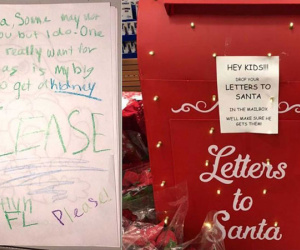 a Some may not
ou but I do. One
really want for
as is my big
o get a kidney
LEASE
Please
FL
HEY KIDS!!!
DROP YOUR
LETTERS TO
SANTA
IN THE MAILBOX
WE'LL MAKE SURE HE
GETS THEM!
Letters
to
Santa